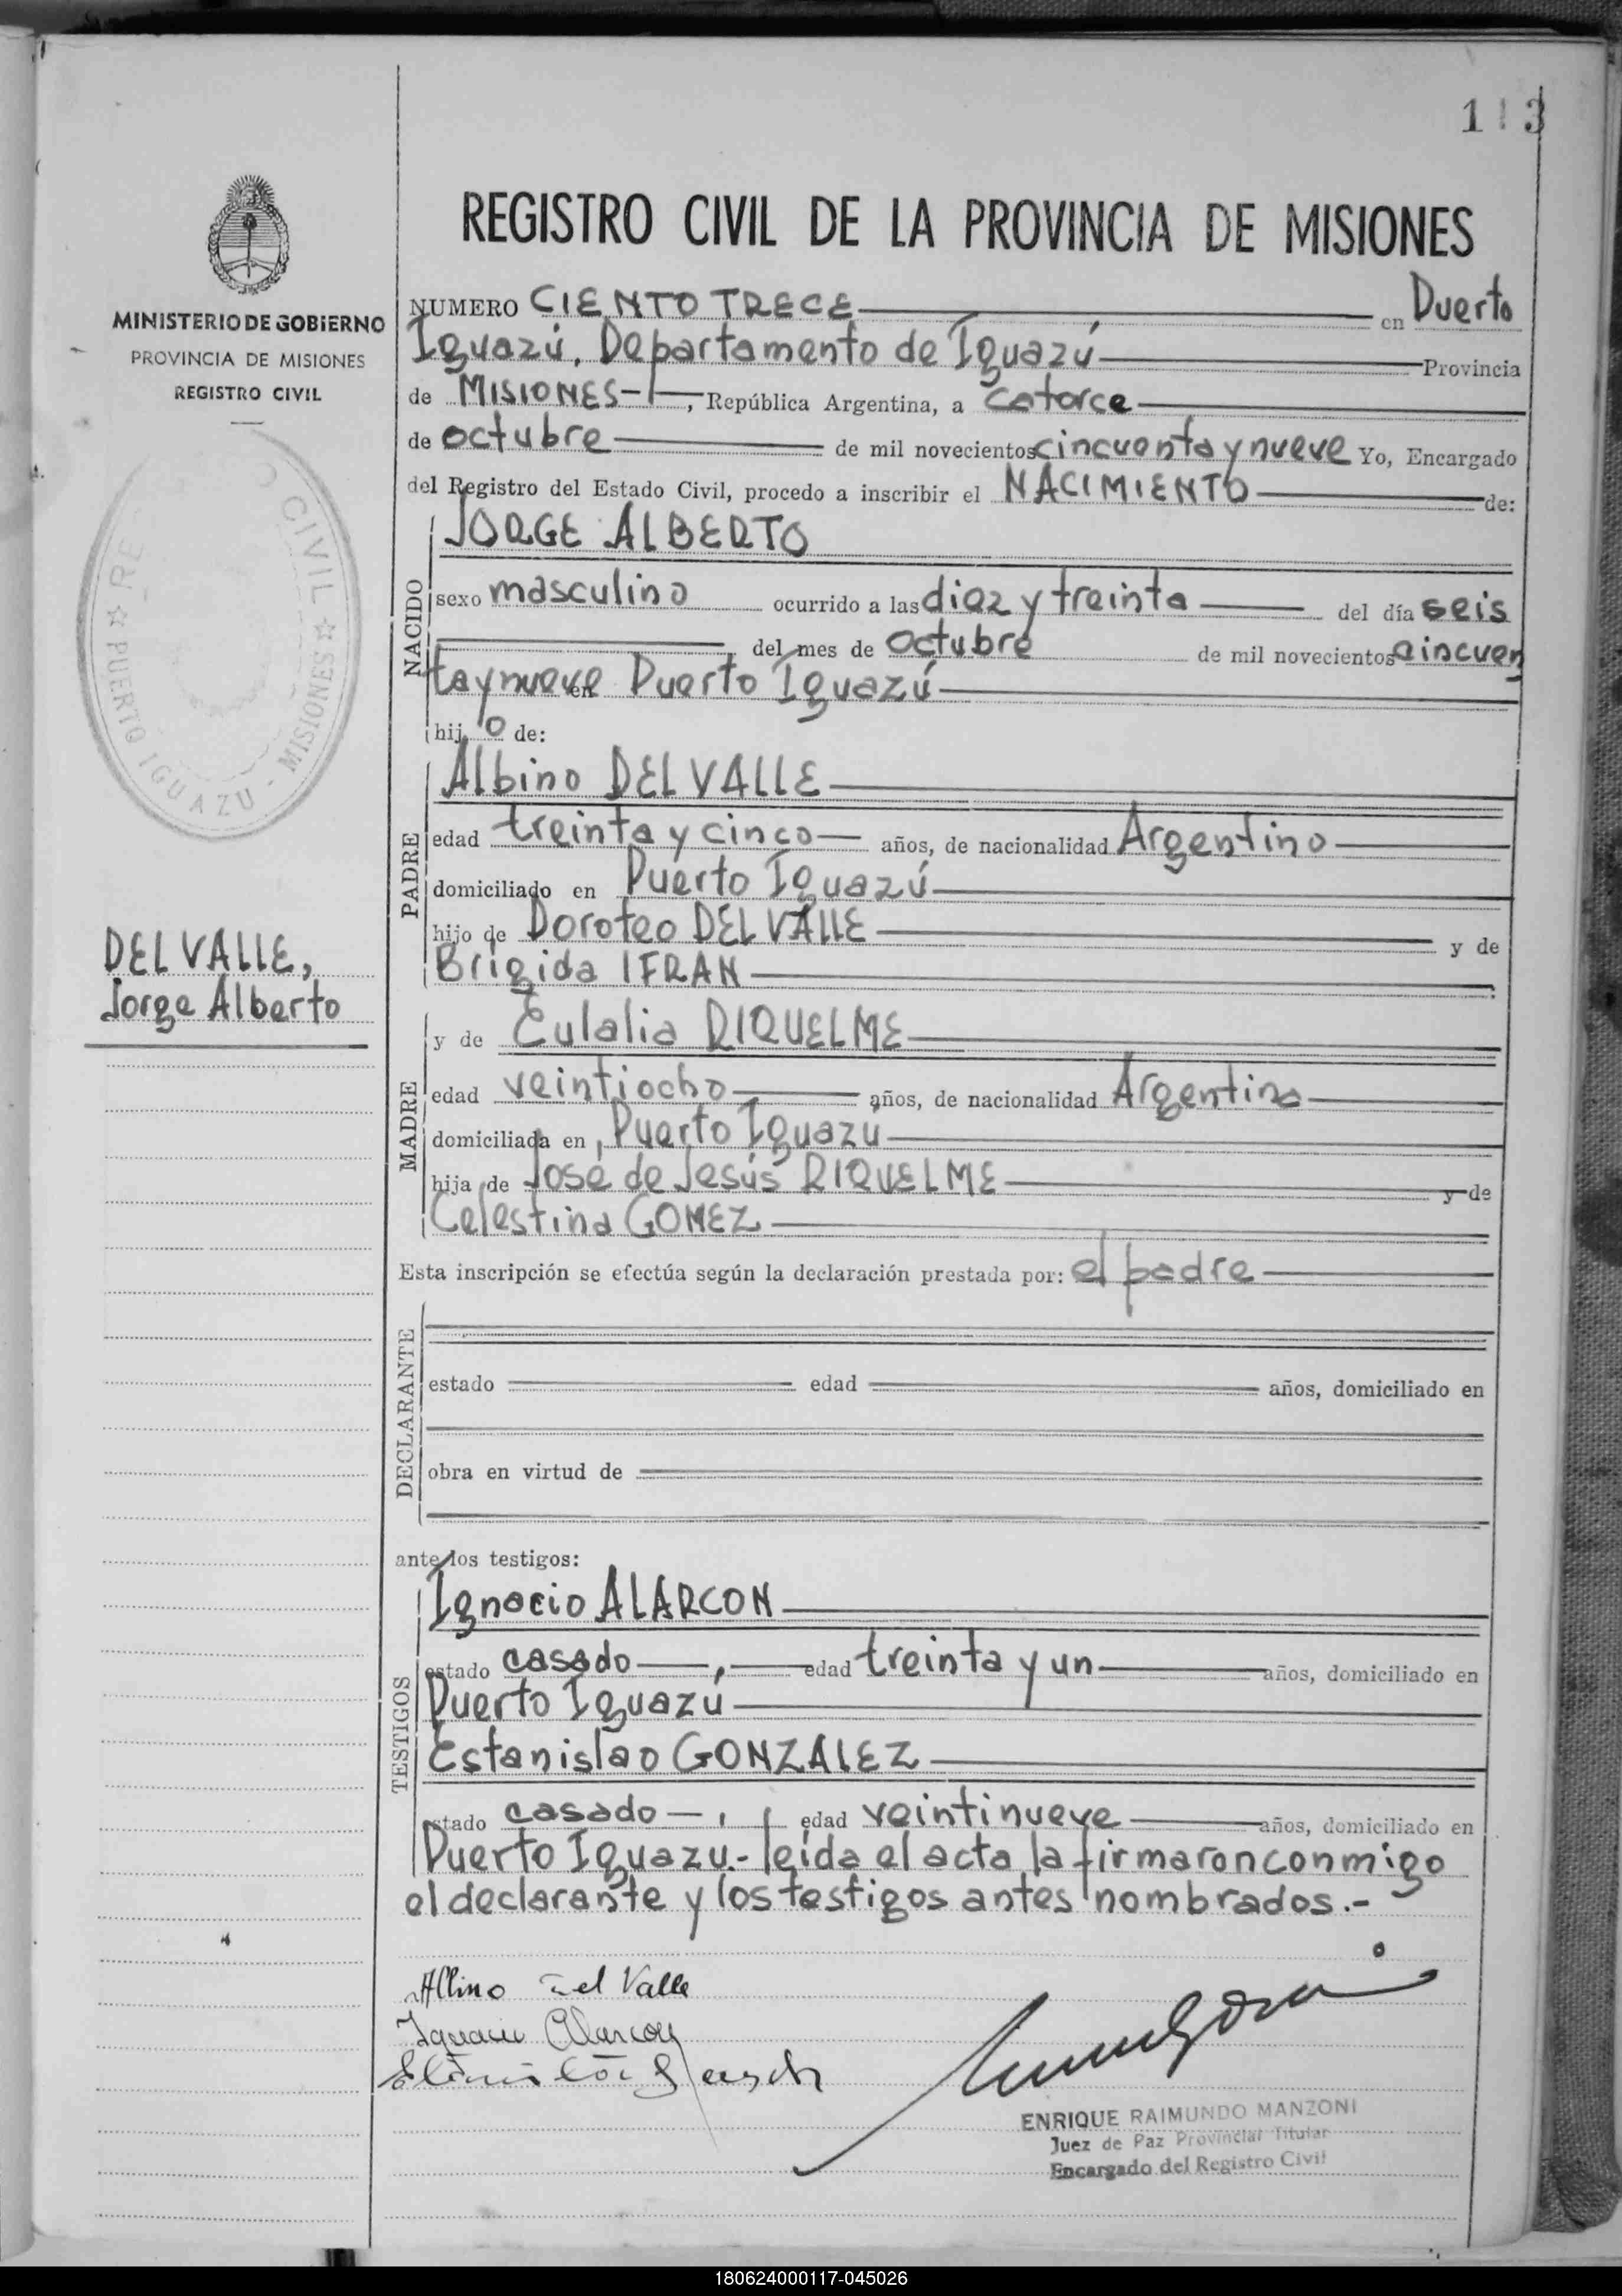 113
REGISTRO CIVIL DE LA PROVINCIA DE MISIONES
MINISTERIO DE GOBIERNO
PROVINCIA DE MISIONES
REGISTRO CIVIL
REGISTRO CIVIL
PUERTO IGUAZU - MISIONES
DEL VALLE,
Jorge Alberto
NUMERO CIENTO TRECE en Puerto
Iguazú, Departamento de Iguazú Provincia
de MISIONES-, República Argentina, a catorce
de octubre de mil novecientos cincuenta y nueve Yo, Encargado
del Registro del Estado Civil, procedo a inscribir el NACIMIENTO de:
NACIDO
JORGE ALBERTO
sexo masculino ocurrido a las diez y treinta del día seis
del mes de octubre de mil novecientos cincuen
ta y nueve en Puerto Iguazú
hijo de:
PADRE
Albino DEL VALLE
edad treinta y cinco años, de nacionalidad Argentino
domiciliado en Puerto Iguazú
hijo de Doroteo DEL VALLE y de
Brigida IFRAN
MADRE
y de Eulalia RIQUELME
edad veintiocho años, de nacionalidad Argentina
domiciliada en Puerto Iguazu
hija de José de Jesús RIQUELME y de
Celestina GOMEZ
Esta inscripción se efectúa según la declaración prestada por: el padre
DECLARANTE
estado edad años, domiciliado en
obra en virtud de
ante los testigos:
TESTIGOS
Ignacio ALARCON
estado casado, edad treinta y un años, domiciliado en
Puerto Iguazú
Estanislao GONZALEZ
estado casado-, edad veintinueve años, domiciliado en
Puerto Iguazu.- leída el acta la firmaron conmigo
el declarante y los testigos antes nombrados.-
Albino del Valle
Ignacio Alarcon
ENRIQUE RAIMUNDO MANZONI
Juez de Paz Provincial Titular
Encargado del Registro Civil
180624000117-045026